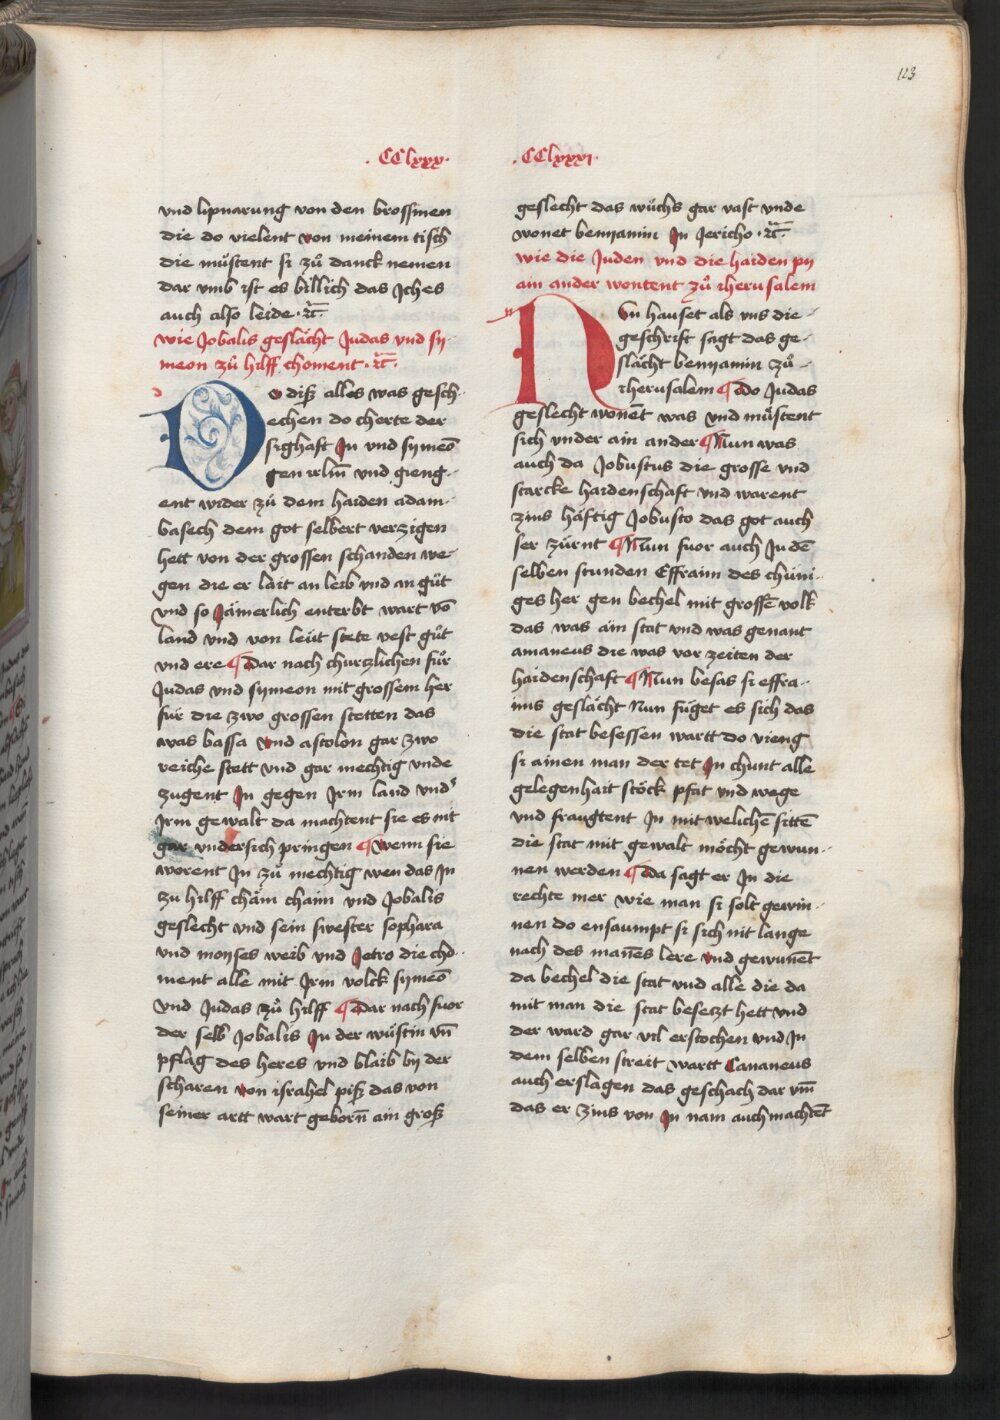 123
.CClxxx.
und lipnarung von den brossmen
die do vielent von meinem tisch
die müstent si zů danck nemen
dar umb ist es billich das Jch es
auch also leide · ꝛc̄·
wie Jobalis geslächt Judas und sy-
meon zů hilff choment · ꝛc̄·
Do diß alles was gesch-
echen do cherte der
sighaft Ju und symeō
gen irlm̄ und gieng-
ent wider zů dem haiden adam-
basech dem got selbert verzigen
hett von der grossen schanden we-
gen die er lait an leib und an gůt
und so Jämerlich enterbt wart vō
land und von leüt stete vest gůt
und ere ¶ Dar nach churtzlichen fůr
Judas und symeon mit grossem her
für die zwo grossen stetten das
was bassa und astolon gar zwo
reiche stett und gar mechtig unde
zugent In gegen Irm land und
Irm gewalt da machtent sie es nit
gar undersich pringen ¶ wenn sie
worent In zů mechtig wen das In
zu hilff chäm chaim und Jobalis
geslecht und sein swester sophara
und moyses weib und Jetro die cho-
ment alle mit Irm volck symeō
und Judas zů hilff ¶ Dar nach fuor
der selb Jobalis In der wüstin uñ
pflag des heres und blaib by der
scharen von israhel piß das von
seiner artt wart geborn̄ ain groß
.CClxxxi.
geslecht das wůchs gar vast unde
wonet benyamin In Jericho · ꝛc̄·
wie die Juden und die haiden py
ain ander wontent zů iherusalem
Nun hauset als uns die
geschrift sagt das ge-
slächt benyamin zů
iherusalem ¶ Do Judas
geslecht wonēt was und müstent
sich under ain ander ¶ Nun was
auch da Jobustus die grosse und
starcke haidenschaft und warent
zins häftig Jobusto das got auch
ser zürnt ¶ Nun fuor auch Ju dē
selben stunden Effraim des chüni-
ges her gen bechel mit grossē volk
das was ain stat und was genant
amaneus die was vor zeiten der
haidenschaft ¶ Nun besas si effra-
ims geslächt Nun füget es sich das
die stat besessen wartt do vieng
si ainen man der tet In chunt alle
gelegenhait stöck pfat und wege
und fraugtent In mit welichē sittē
die stat mit gewalt möcht gewun-
nen werden ¶ Da sagt er In die
rechte mer wie man si solt gewin-
nen do ensaumpt si sich nit lange
nach des manes lere und gewunēt
da bechel die stat und alle die da
mit man die stat besetzt hett und
der ward gar vil erstochen und In
dem selben streit wartt Cananeus
auch erslagen das geschach dar um̄
das er zins von In nam auch machtēt